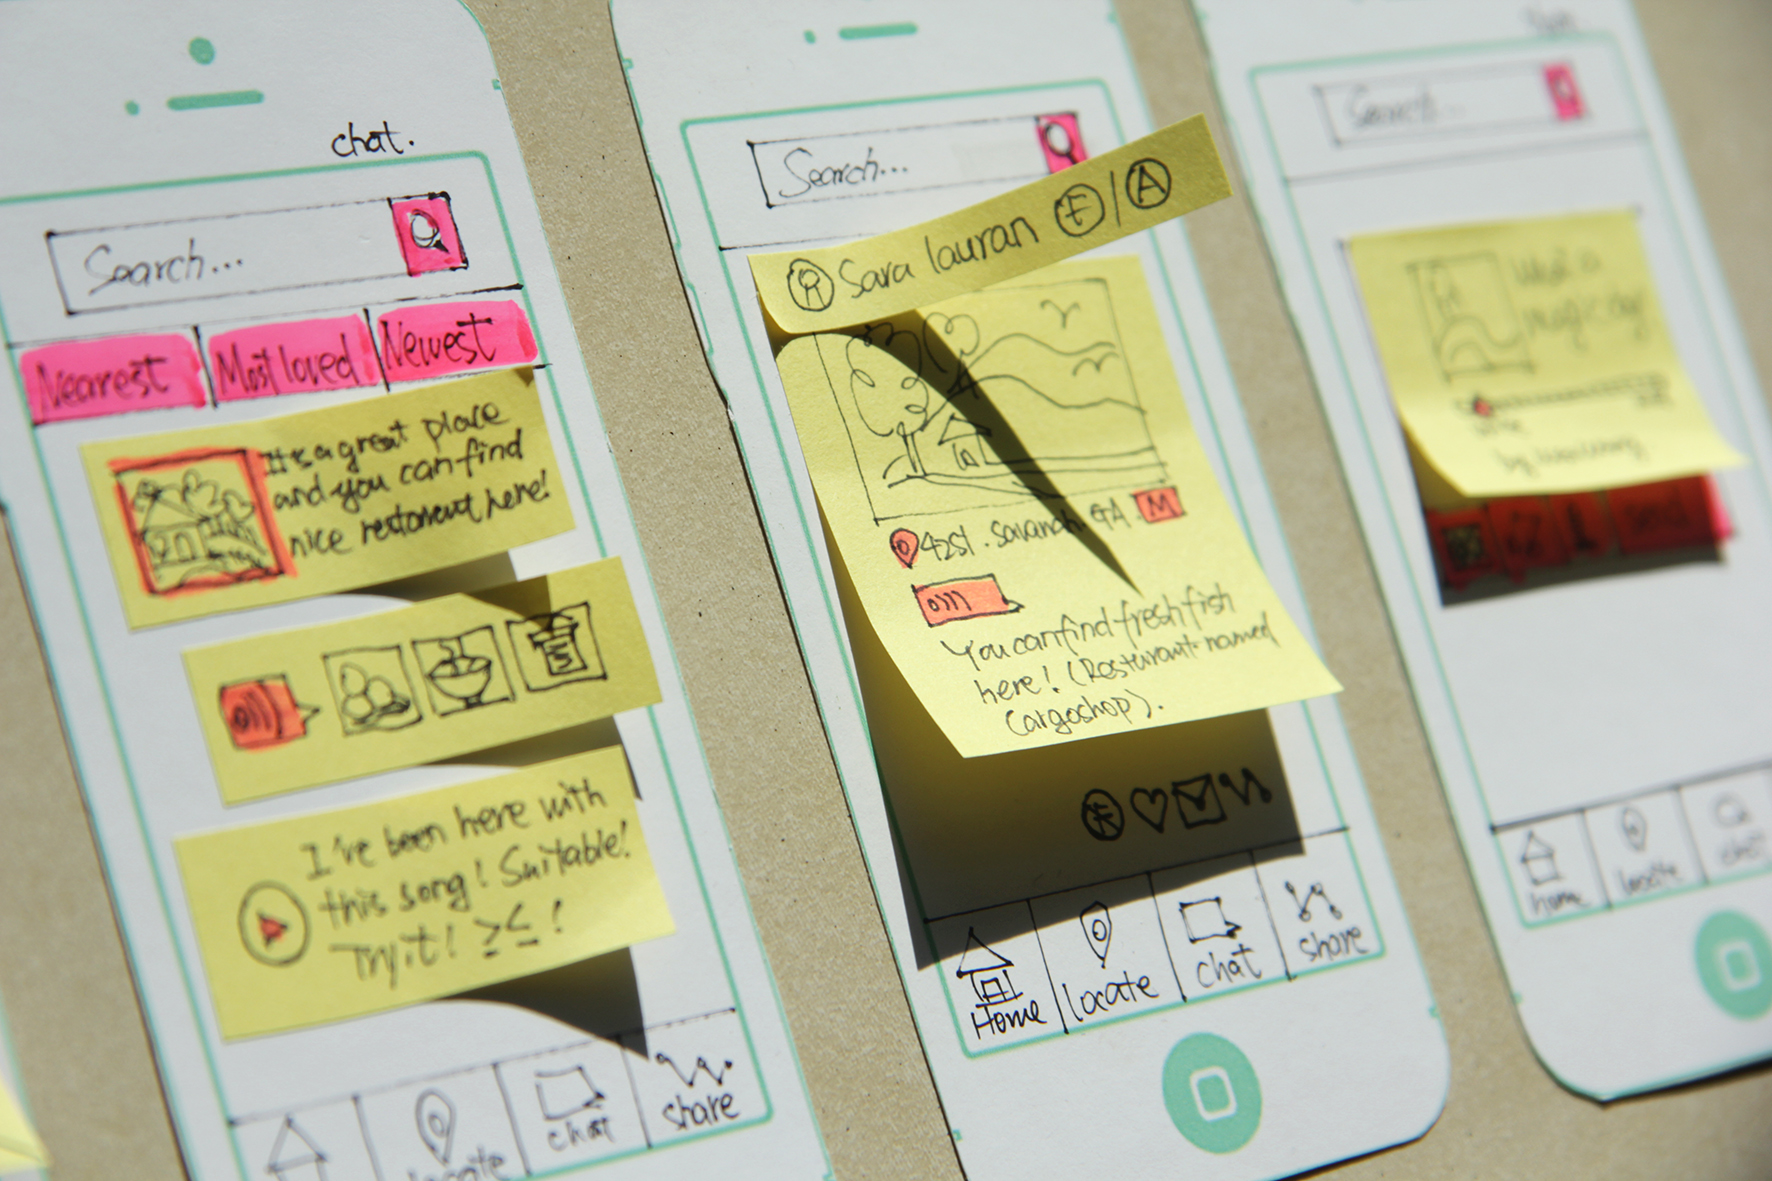 chat.
Search...
Nearest
Most loved
Newest
It's a great place
and you can find
nice restorent here!
I've been here with
this song! Suitable!
Try it! ≥≤!
locate
chat
share
Search...
R Sara lauran F/A
42st. savanah. GA. M
You can find fresh fish
here! (Resturant named
Cargoshop).
Home
locate
chat
share
Search...
What a
magic day!
home
locate
chat